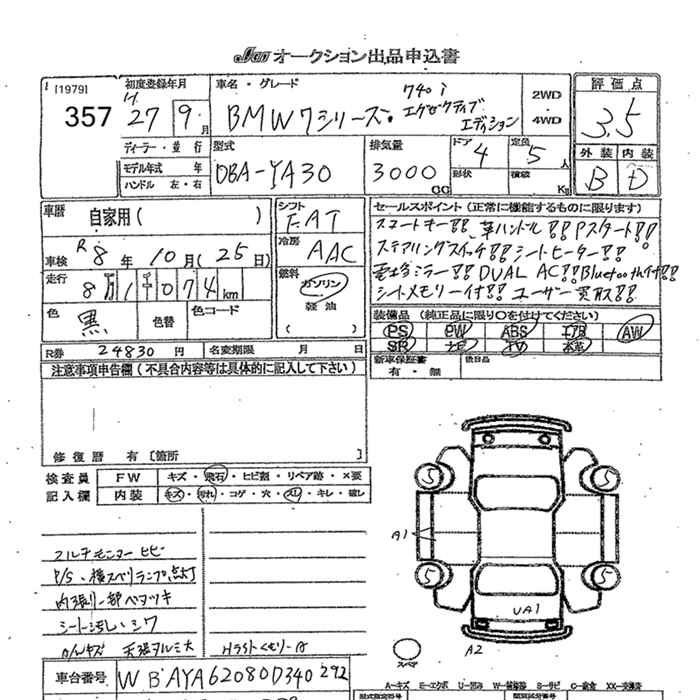 JU オークション出品申込書
[1979]
357
初度登録年月
H 27 9 月
車名・グレード
BMW7シリーズ・
740i
エグゼクティブ
エディション
2WD
・
4WD
評価点
3.5
外装 内装
B D
ディーラー・並行
モデル年式 年
ハンドル 左・右
型式
DBA-YA30
排気量
3000
CC
ドア 4
形状
定員 5 人
積載 Kg
車歴 自家用( )
車検 R8年 10月(25日)
走行 8万1千074km
色 黒 色替 色コード
R券 24830円 名変期限 月 日
シフト
FAT
冷房
AAC
燃料
ガソリン
・
軽油
( )
セールスポイント(正常に機能するものに限ります)
スマートキー!! 革ハンドル!! Pスタート!!
ステアリングスイッチ!! シートヒーター!!
電格ミラー!! DUAL AC!! Bluetooth付!!
シートメモリー付!! ユーザー買取!!
装備品(純正品に限り○を付けてください)
PS PW ABS エアB AW
SR ナビ TV 本革
新車保証書 後日品
有・無
注意事項申告欄(不具合内容等は具体的に記入して下さい)
修復歴 有〔箇所 〕
検査員 FW キズ・飛石・ヒビ割・リペア跡・×要
記入欄 内装 キズ・汚れ・コゲ・穴・スレ・キレ・破レ
マルチモニター ヒビ
P/S、横スベリランプ点灯
内張り一部ベタツキ
シート汚レ・シワ
かんキズ 天張ヲルミ大 Hライトくもり・A
車台番号 WBAYA62080D340292
5 5
A1
5 5
UA1
A2
スペア
A=キズ E=エクボ U=凹み W=補修跡 B=サビ C=腐食 XX=交換済